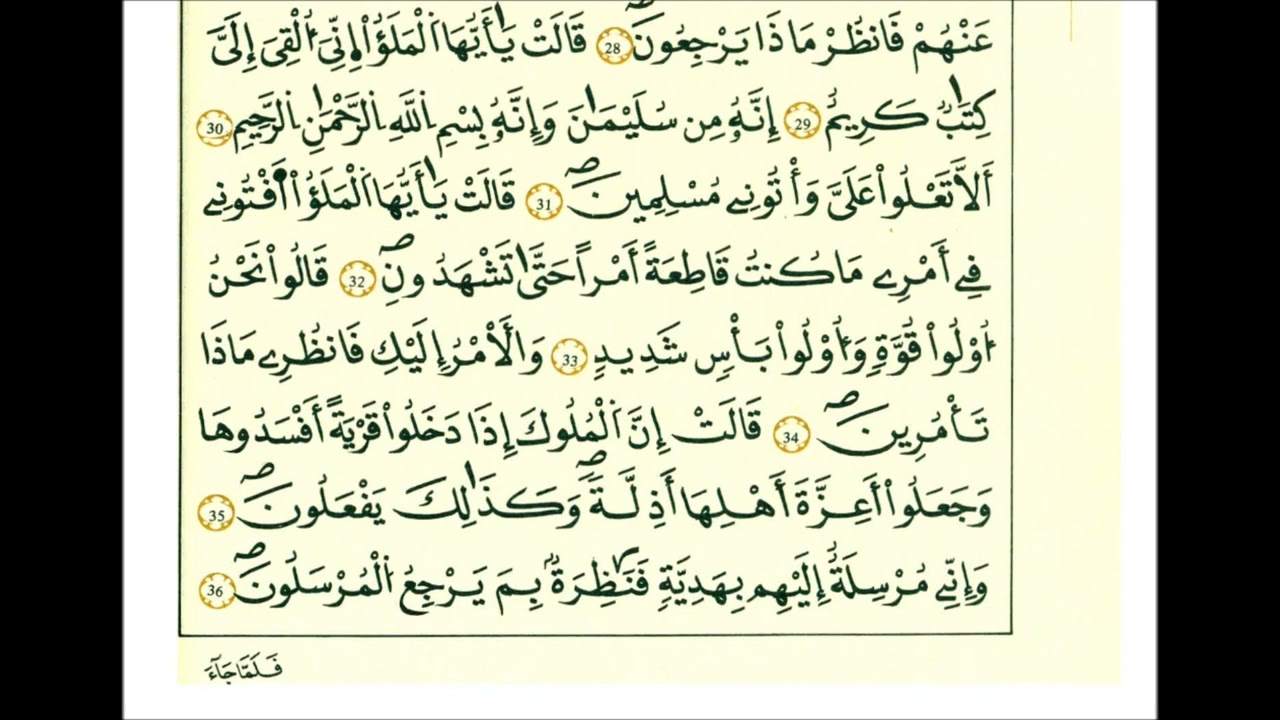 عَنْهُمْ فَانظُرْ مَاذَا يَرْجِعُونَۖ 28 قَالَتْ يَٰأَيُّهَا اَ۬لْمَلَؤُاْ اِ۪نِّيَ أُ۬لْقِيَ إِلَيَّ
كِتَٰبٞ كَرِيمٌ 29 إِنَّهُۥ مِن سُلَيْمَٰنَ وَإِنَّهُۥ بِسْمِ اِ۬للَّهِ اِ۬لرَّحْمَٰنِ اِ۬لرَّحِيمِ 30
أَلَّا تَعْلُواْ عَلَيَّ وَأْتُونِے مُسْلِمِينَۖ 31 قَالَتْ يَٰأَيُّهَا اَ۬لْمَلَؤُاْ اَفْتُونِے
فِے أَمْرِے مَا كُنتُ قَاطِعَةً أَمْراً حَتَّىٰ تَشْهَدُونِۖ 32 قَالُواْ نَحْنُ
أُوْلُواْ قُوَّةٖ وَأُوْلُواْ بَأْسٖ شَدِيدٖ 33 وَالَامْرُ إِلَيْكِ فَانظُرِے مَاذَا
تَأْمُرِينَۖ 34 قَالَتْ إِنَّ اَ۬لْمُلُوكَ إِذَا دَخَلُواْ قَرْيَةً أَفْسَدُوهَا
وَجَعَلُواْ أَعِزَّةَ أَهْلِهَا أَذِلَّةٗۖ وَكَذَٰلِكَ يَفْعَلُونَۖ 35
وَإِنِّے مُرْسِلَةٌ إِلَيْهِم بِهَدِيَّةٖ فَنَٰظِرَةُۢ بِمَ يَرْجِعُ اُ۬لْمُرْسَلُونَۖ 36
فَلَمَّا جَآءَ